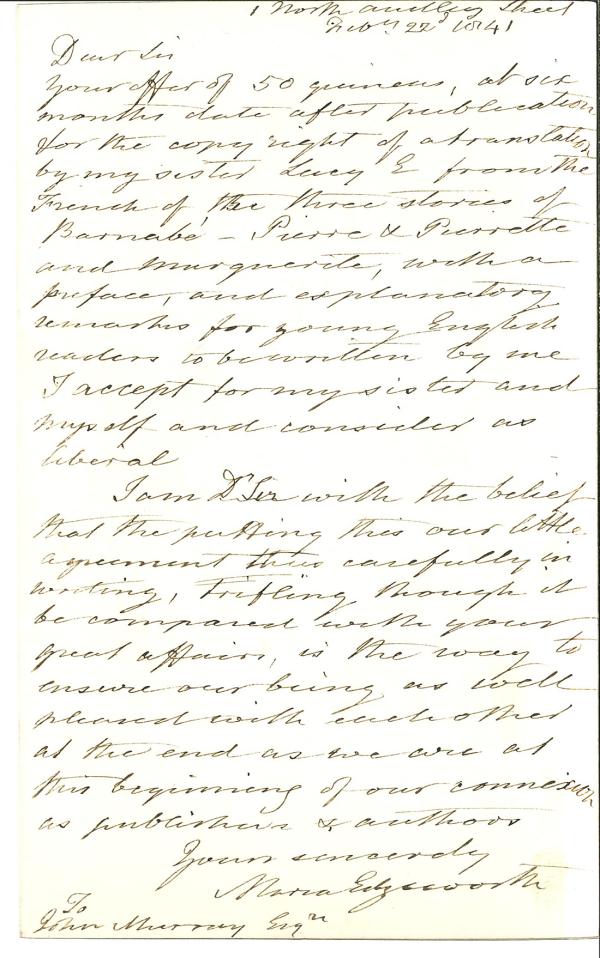 1 North Audley Street
Feby 22d 1841
Dear Sir
Your offer of 50 guineas, at six
months date after publication
for the copy right of a translation
by my sister Lucy E from the
French of the three stories of
Barnabé – Pierre & Pierrette
and Marguerite, with a
preface, and explanatory
remarks for young English
readers to be written by me
I accept for my sister and
myself and consider as
liberal
I am Dr Sir with the belief
that the putting this our little
agreement thus carefully in
writing, trifling though it
be compared with your
great affairs, is the way to
ensure our being as well
pleased with each other
at the end as we are at
this beginning of our connexion
as publishers & authors
Yours sincerely
Maria Edgeworth
To
John Murray Esqre